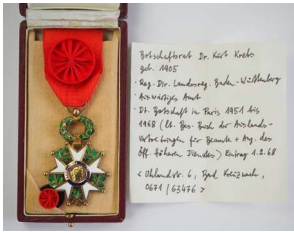 Botschaftsrat Dr. Kurt Krebs
geb. 1905
· Reg. Dir. Landesreg. Baden-Württemberg
· Auswärtiges Amt
· Dt. Botschaft in Paris 1951 bis
1968 (lt. Bes. Buch der Auslands-
vertretungen für Beamte + Ang. des
öff. höheren Dienstes) Eintrag 1.2.68
< Uhlandstr. 6, Bad Kreuznach,
0671 / 63476 >